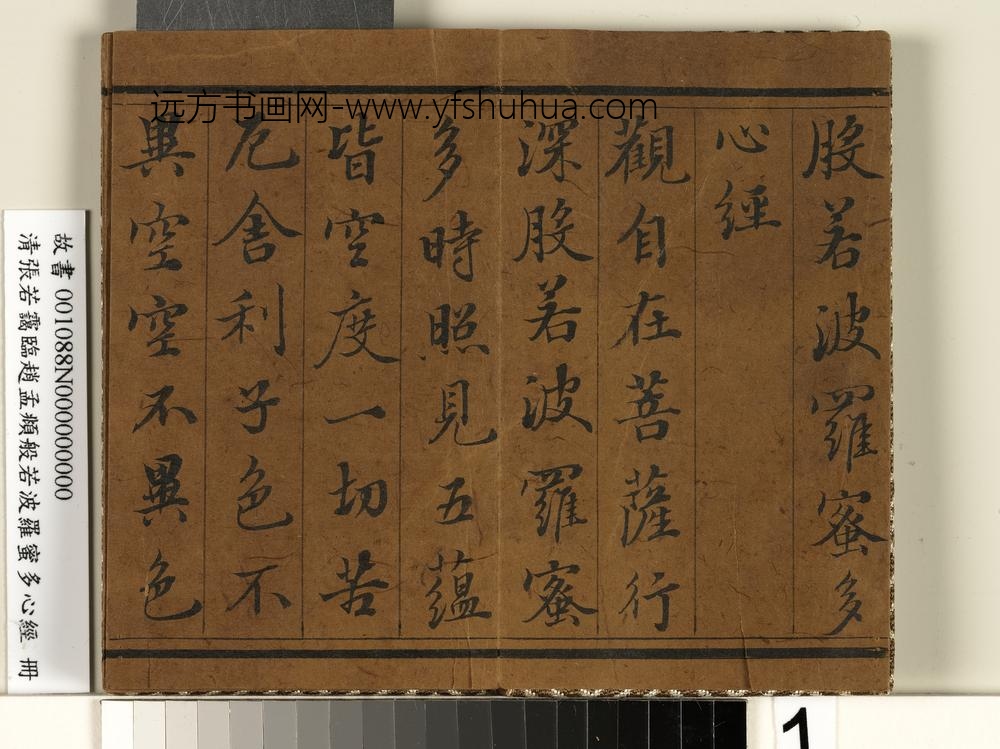 远方书画网-www.yfshuhua.com
般若波羅蜜多
心經
觀自在菩薩行
深般若波羅蜜
多時照見五蘊
皆空度一切苦
厄舍利子色不
異空空不異色
故書 001088N000000000
清張若靄臨趙孟頫般若波羅蜜多心經 冊
1